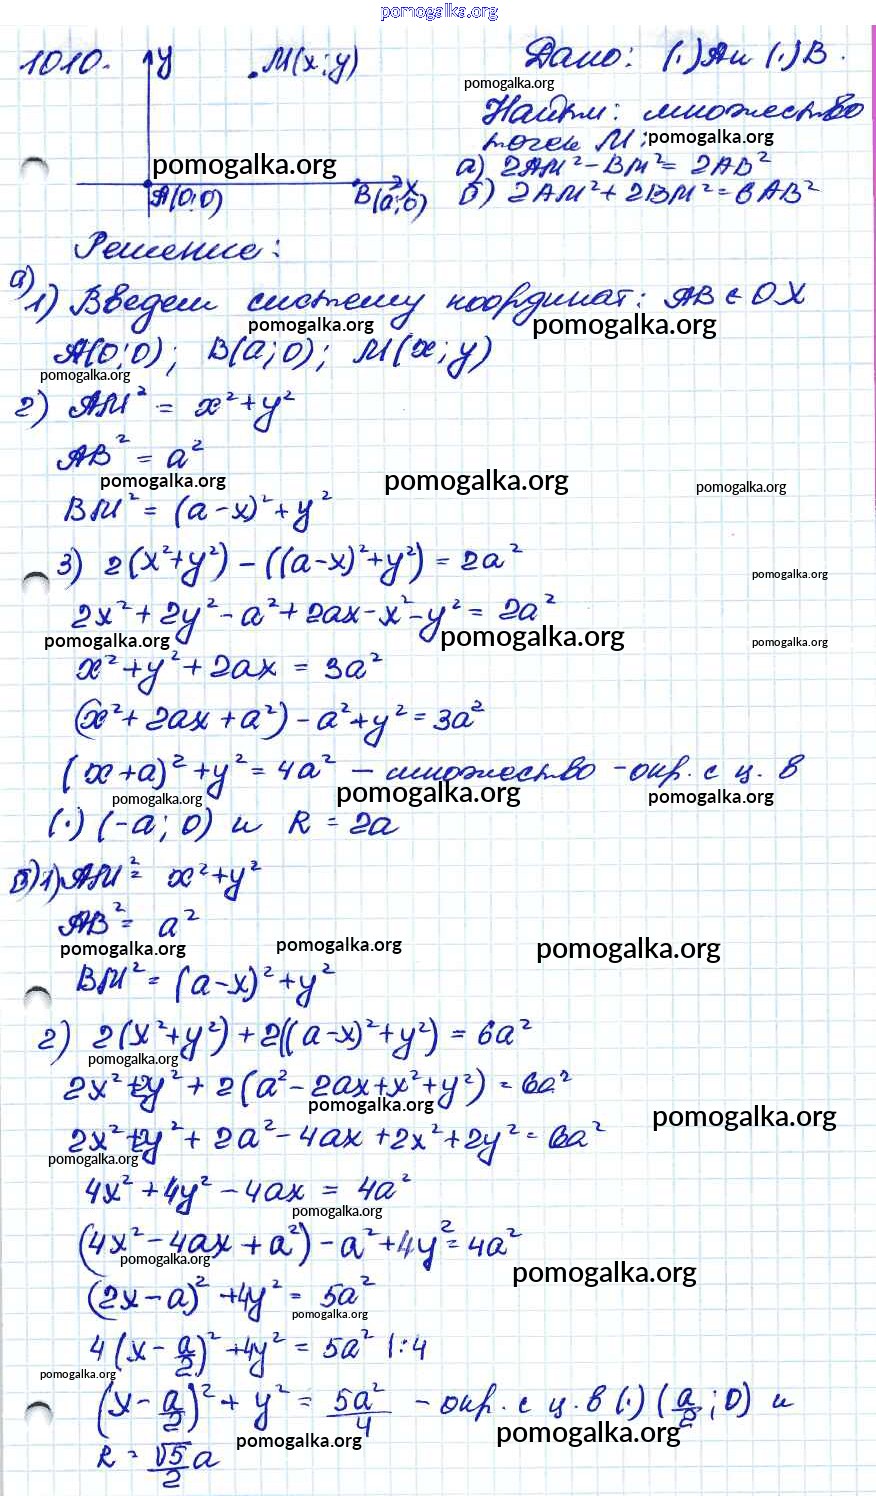 pomogalka.org
1010. y .M(x;y) Дано: (·)A и (·)B.
pomogalka.org
Найти: множество
точек M: pomogalka.org
pomogalka.org а) 2AM² - BM² = 2AB²
A(0;0) B(a;0) x б) 2AM² + 2BM² = 6AB²
Решение:
а)
1) Введем систему координат: AB ∈ OX
pomogalka.org pomogalka.org
A(0;0); B(a;0); M(x;y)
pomogalka.org
2) AM² = x² + y²
AB² = a²
pomogalka.org pomogalka.org pomogalka.org
BM² = (a-x)² + y²
3) 2(x²+y²) - ((a-x)²+y²) = 2a²
pomogalka.org
2x² + 2y² - a² + 2ax - x² - y² = 2a²
pomogalka.org pomogalka.org pomogalka.org
x² + y² + 2ax = 3a²
(x² + 2ax + a²) - a² + y² = 3a²
(x+a)² + y² = 4a² - множество - окр. с ц. в
pomogalka.org pomogalka.org pomogalka.org
(·) (-a; 0) и R = 2a
б) 1) AM² = x² + y²
AB² = a²
pomogalka.org pomogalka.org pomogalka.org
BM² = (a-x)² + y²
2) 2(x²+y²) + 2((a-x)²+y²) = 6a²
pomogalka.org
2x² + 2y² + 2(a² - 2ax + x² + y²) = 6a²
pomogalka.org pomogalka.org
2x² + 2y² + 2a² - 4ax + 2x² + 2y² = 6a²
pomogalka.org
4x² + 4y² - 4ax = 4a²
pomogalka.org
(4x² - 4ax + a²) - a² + 4y² = 4a²
pomogalka.org pomogalka.org
(2x-a)² + 4y² = 5a²
pomogalka.org
4(x - a/2)² + 4y² = 5a² |:4
pomogalka.org
(x - a/2)² + y² = 5a²/4 - окр. с ц. в (·) (a/2; 0) и
pomogalka.org pomogalka.org
R = √5/2 a